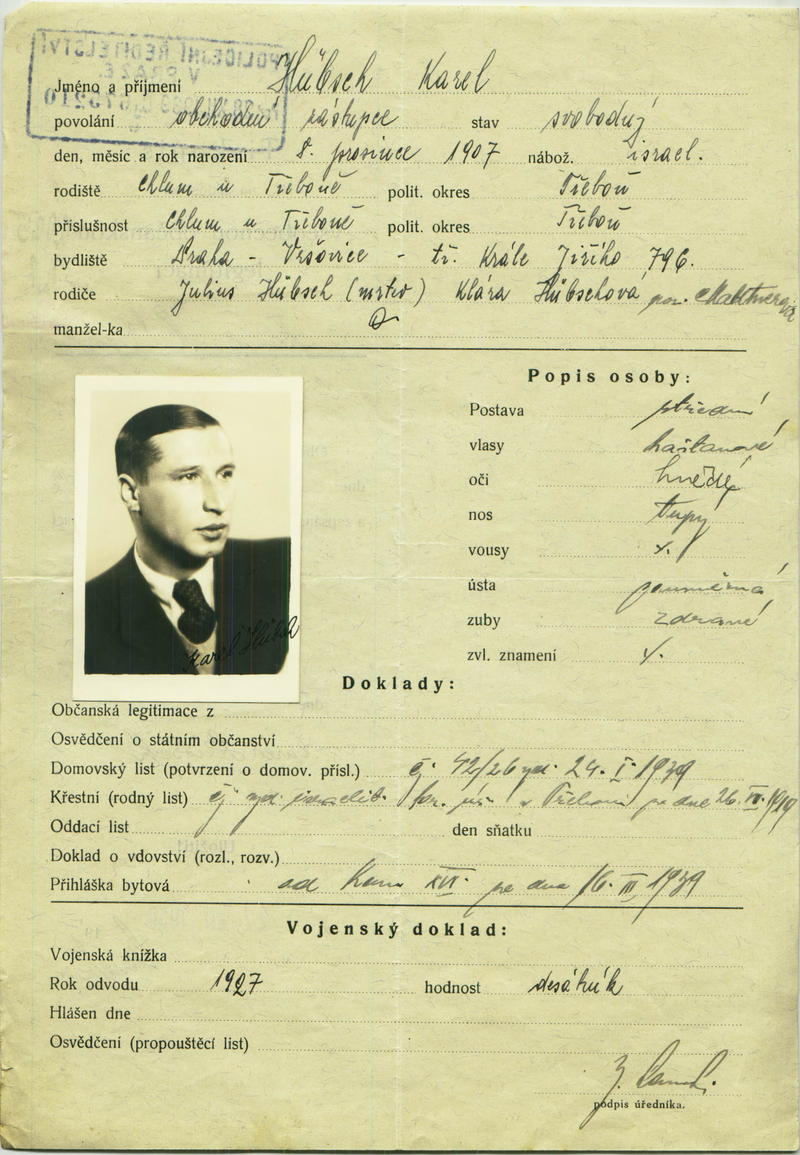 POLICEJNÍ ŘEDITELSTVÍ
V PRAZE.
Jméno a příjmení Hübsch Karel
povolání obchodní zástupce stav svobodný
den, měsíc a rok narození 8. prosince 1907 nábož. israel.
rodiště Chlum u Třeboně polit. okres Třeboň
příslušnost Chlum u Třeboně polit. okres Třeboň
bydliště Praha - Vršovice - tř. Krále Jiřího 796.
rodiče Julius Hübsch (mrtev) Klára Hübschová
manžel-ka
Popis osoby:
Postava střední
vlasy kaštanové
oči hnědé
nos tupý
vousy x.
ústa souměrná
zuby zdravé
zvl. znamení x.
Karel Hübsch
Doklady:
Občanská legitimace z
Osvědčení o státním občanství
Domovský list (potvrzení o domov. přísl.) čj. 42/26 vyd. 24. I. 1939
Křestní (rodný list) čj vyd. israelit. v Třeboni ze dne 26. IV.
Oddací list den sňatku
Doklad o vdovství (rozl., rozv.)
Přihláška bytová od Kom XVI. ze dne 16. III 1939
Vojenský doklad:
Vojenská knížka
Rok odvodu 1927 hodnost desátník
Hlášen dne
Osvědčení (propouštěcí list)
podpis úředníka.